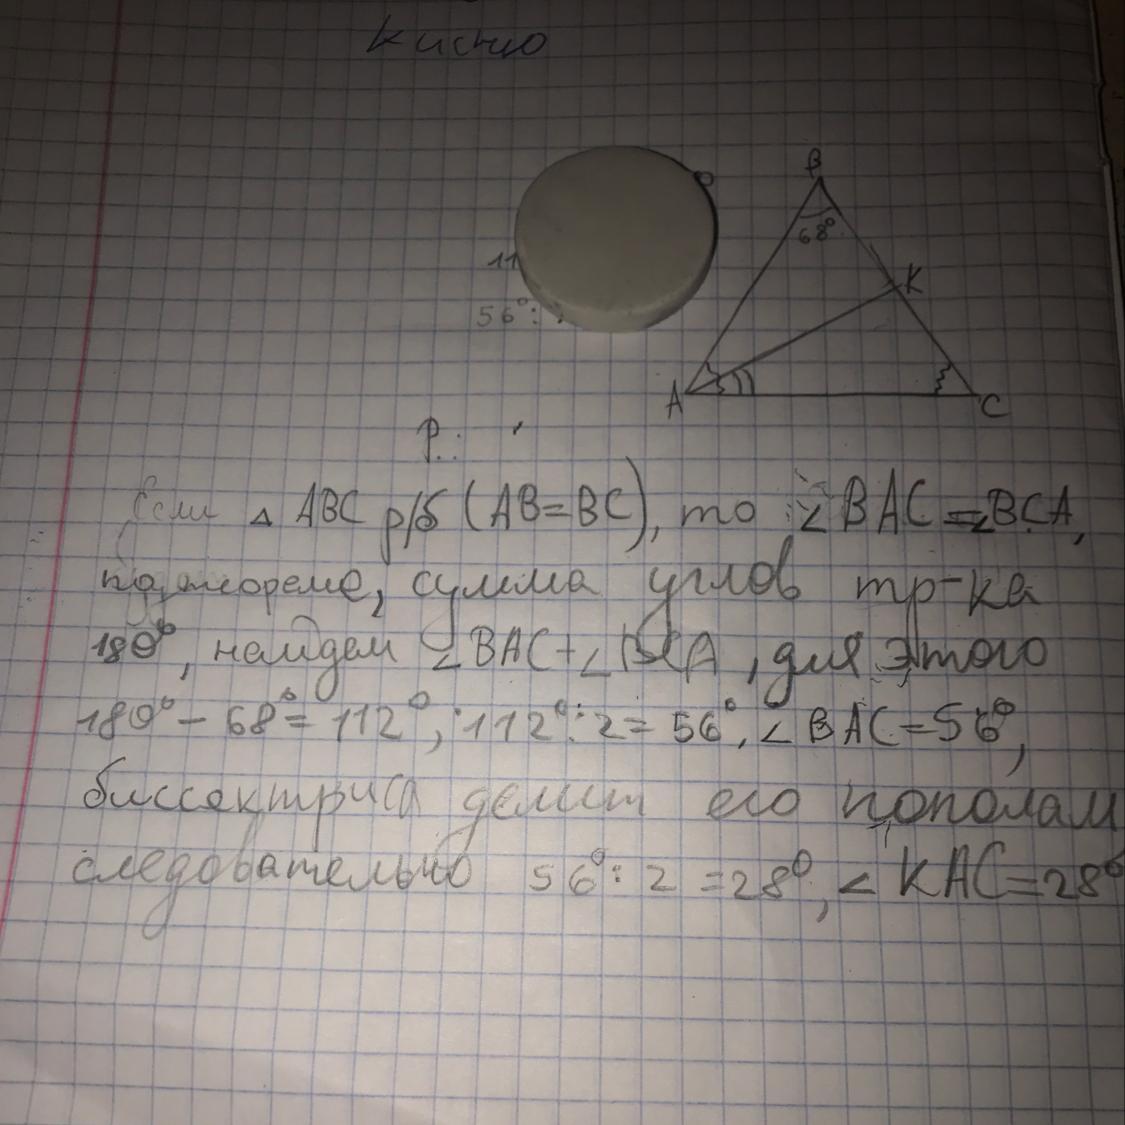 11
56°:
B
68°
K
A
C
Р.:
Если △ ABC р/б (AB=BC), то ∠BAC=∠BCA,
по теореме, сумма углов тр-ка
180°, найдем ∠BAC+∠BCA, для этого
180°-68°=112°; 112°:2=56°, ∠BAC=56°,
биссектриса делит его пополам
следовательно 56°:2=28°, ∠KAC=28°